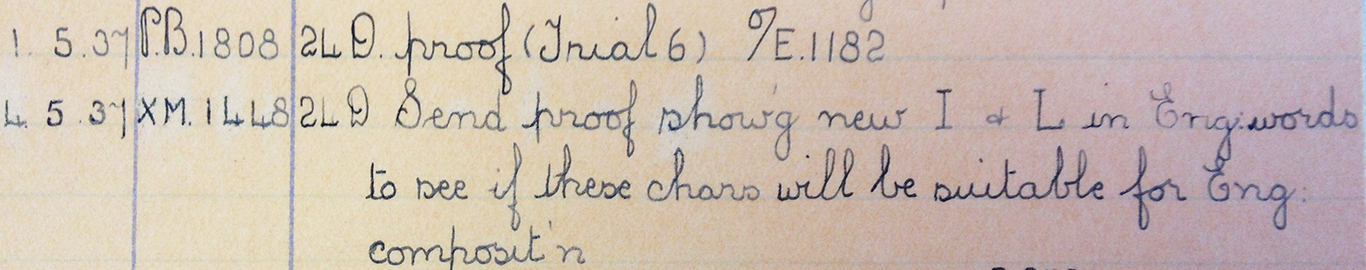 1. 5.37 P.B.1808 24 D. proof (Trial 6) O/E.1182
4. 5.37 XM.1448 24 D Send proof show'g new I & L in Eng: words
to see if these chars will be suitable for Eng:
composit'n